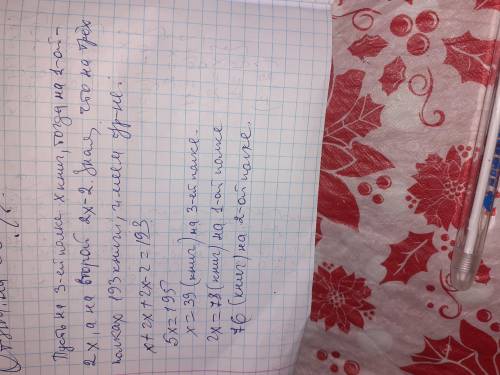 Пусть на 3-ей полке x книг, тогда на 1-ой -
2x а на второй 2x-2 Зная, что на трёх
полках 193 книги, имеем ур-не:
x+2x+2x-2=193
5x=195
x=39 (книг) на 3-ей полке.
2x=78 (книг) на 1-ой полке
76 (книг) на 2-ой полке.